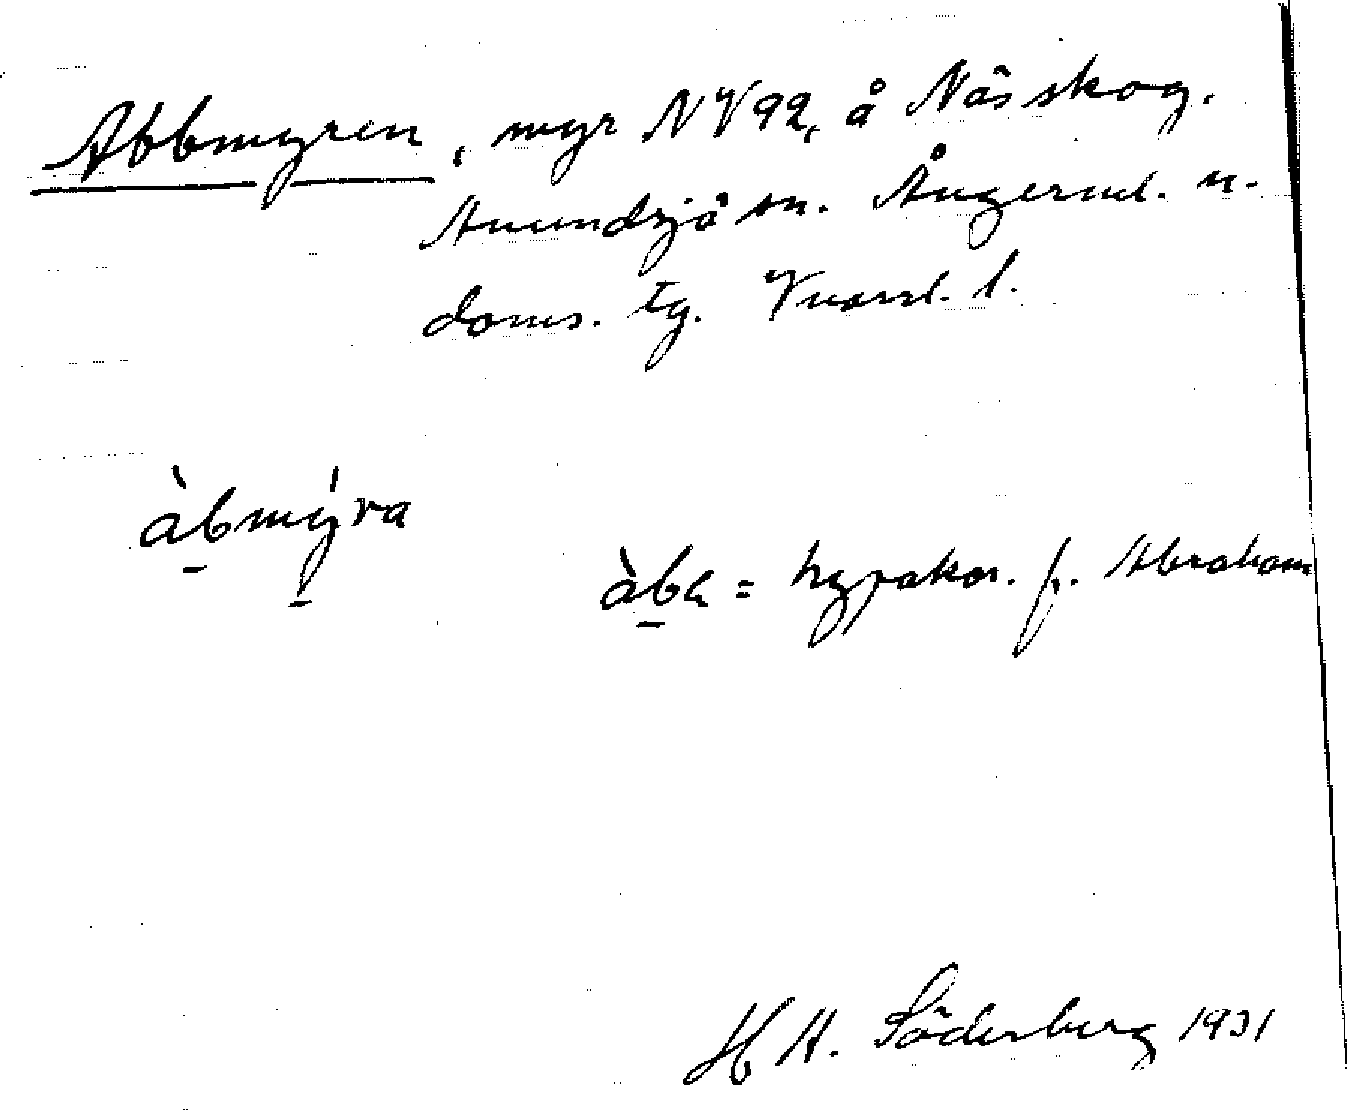 Abbmyren, myr NV92, å Näs skog.
Anundsjö sn. Ångerml. n.
doms. tg. Vnorrl. l.
àbmýra
àba = hypokor. f. Abraham
H A. Söderberg 1931